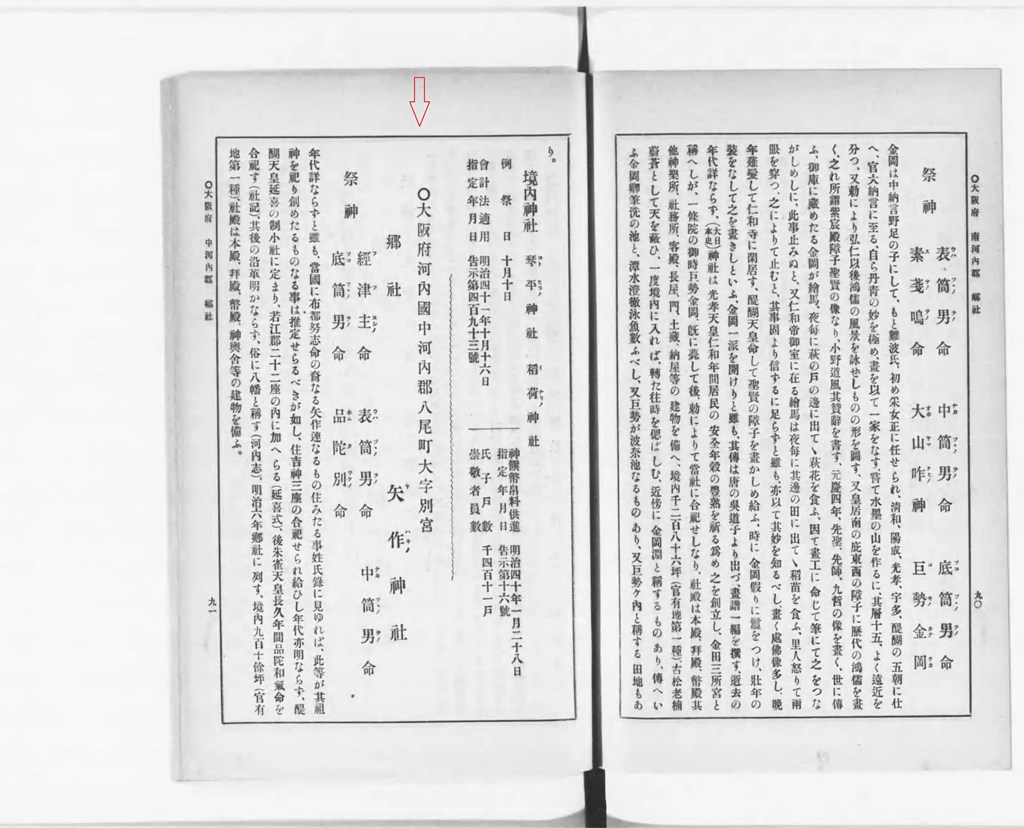 ○大阪府　南河內郡　鄕社
九〇
祭神
表筒男命　中筒男命　底筒男命
素戔嗚命　大山咋神　巨勢金岡
金岡は中納言野足の子にして、もと難波氏、初め采女正に任せられ、淸和、陽成、光孝、宇多、醍醐の五朝に仕
へ、官大納言に至る、自ら丹靑の妙を極め、畫を以て一家をなす、嘗て水墨の山を作るに、其層十五、よく遠近を
分つ、又勅により弘仁以後鴻儒の風景を詠せしものの形を圖す、又皇居南の庇東西の障子に歷代の鴻儒を畫
く、之れ所謂紫宸殿障子聖賢の像なり、小野道風其贊辭を書す、元慶四年、先聖、先師、九哲の像を畫く、世に傳
ふ、御庫に藏めたる金岡が繪馬、夜每に萩の戶の邊に出てヽ萩花を食ふ、因て畫工に命じて筆にて之をつな
がしめしに、此事止みぬと、又仁和帝御室に在る繪馬は夜每に其邊の田に出てヽ稻苗を食ふ、里人怒りて兩
眼を穿つ、之によりて止むと、其事固より信するに足らずと雖も、亦以て其妙を知るべし、畫く處佛像多し、晚
年薙髮して仁和寺に閑居す、醍醐天皇命して聖賢の障子を畫かしめ給ふ、時に金岡假りに鬘をつけ、壯年の
裝をなして之を畫きしといふ、金岡一派を開けりと雖も、其傳は唐の吳道子より出づ、畫譜一編を撰す、逝去の
年代詳ならず、(大日本史)神社は光孝天皇仁和年間居民の安全年穀の豐熟を祈る爲め之を創立し、金田三所宮と
稱へしが、一條院の御時巨勢金岡、旣に薨して後、勅によりて當社に合祀せしなり、社殿は本殿、拜殿、幣殿其
他神樂所、社務所、客殿、長屋、門、土藏、納屋等の建物を備へ、境內千二百八十六坪(官有地第一種)古松老楠
蔚蒼として天を蔽ひ、一度境內に入れば、轉た往時を偲ばしむ、近傍に金岡淵と稱するものあり、傳へい
ふ金岡卿筆洗の池と、潭水澄徹泳魚數ふべし、又巨勢が波奈池なるものあり、又巨勢ケ內と稱する田地もあ
り。
境內神社　琴平神社　稻荷神社
例祭日　十月十日
會計法適用　明治四十一年十月十六日
指定年月日　告示第四百九十三號
神饌幣帛料供進　明治四十年一月二十八日
指定年月日　告示第十六號
氏子戶數　千四百十一戶
崇敬者員數
○大阪府河內國中河內郡八尾町大字別宮
鄕社　矢作神社
祭神
經津主命　表筒男命　中筒男命
底筒男命　品陀別命
年代詳ならずと雖も、當國に布都努志命の裔なる矢作連なるもの住みたる事姓氏錄に見ゆれば、此等が其祖
神を祀り創めたるものなる事は推定せらるべきが如し、住吉神三座の合祀せられ給ひし年代亦明ならず、醍
醐天皇延喜の制小社に定まり、若江郡二十二座の內に加へらる(延喜式)、後朱雀天皇長久年間品陀和氣命を
合祀す(社記)、其後の沿革明かならず、俗に八幡と稱す(河內志)、明治六年鄕社に列す、境內九百十餘坪(官有
地第一種)社殿は本殿、拜殿、幣殿、神輿舍等の建物を備ふ。
○大阪府　中河內郡　鄕社
九一